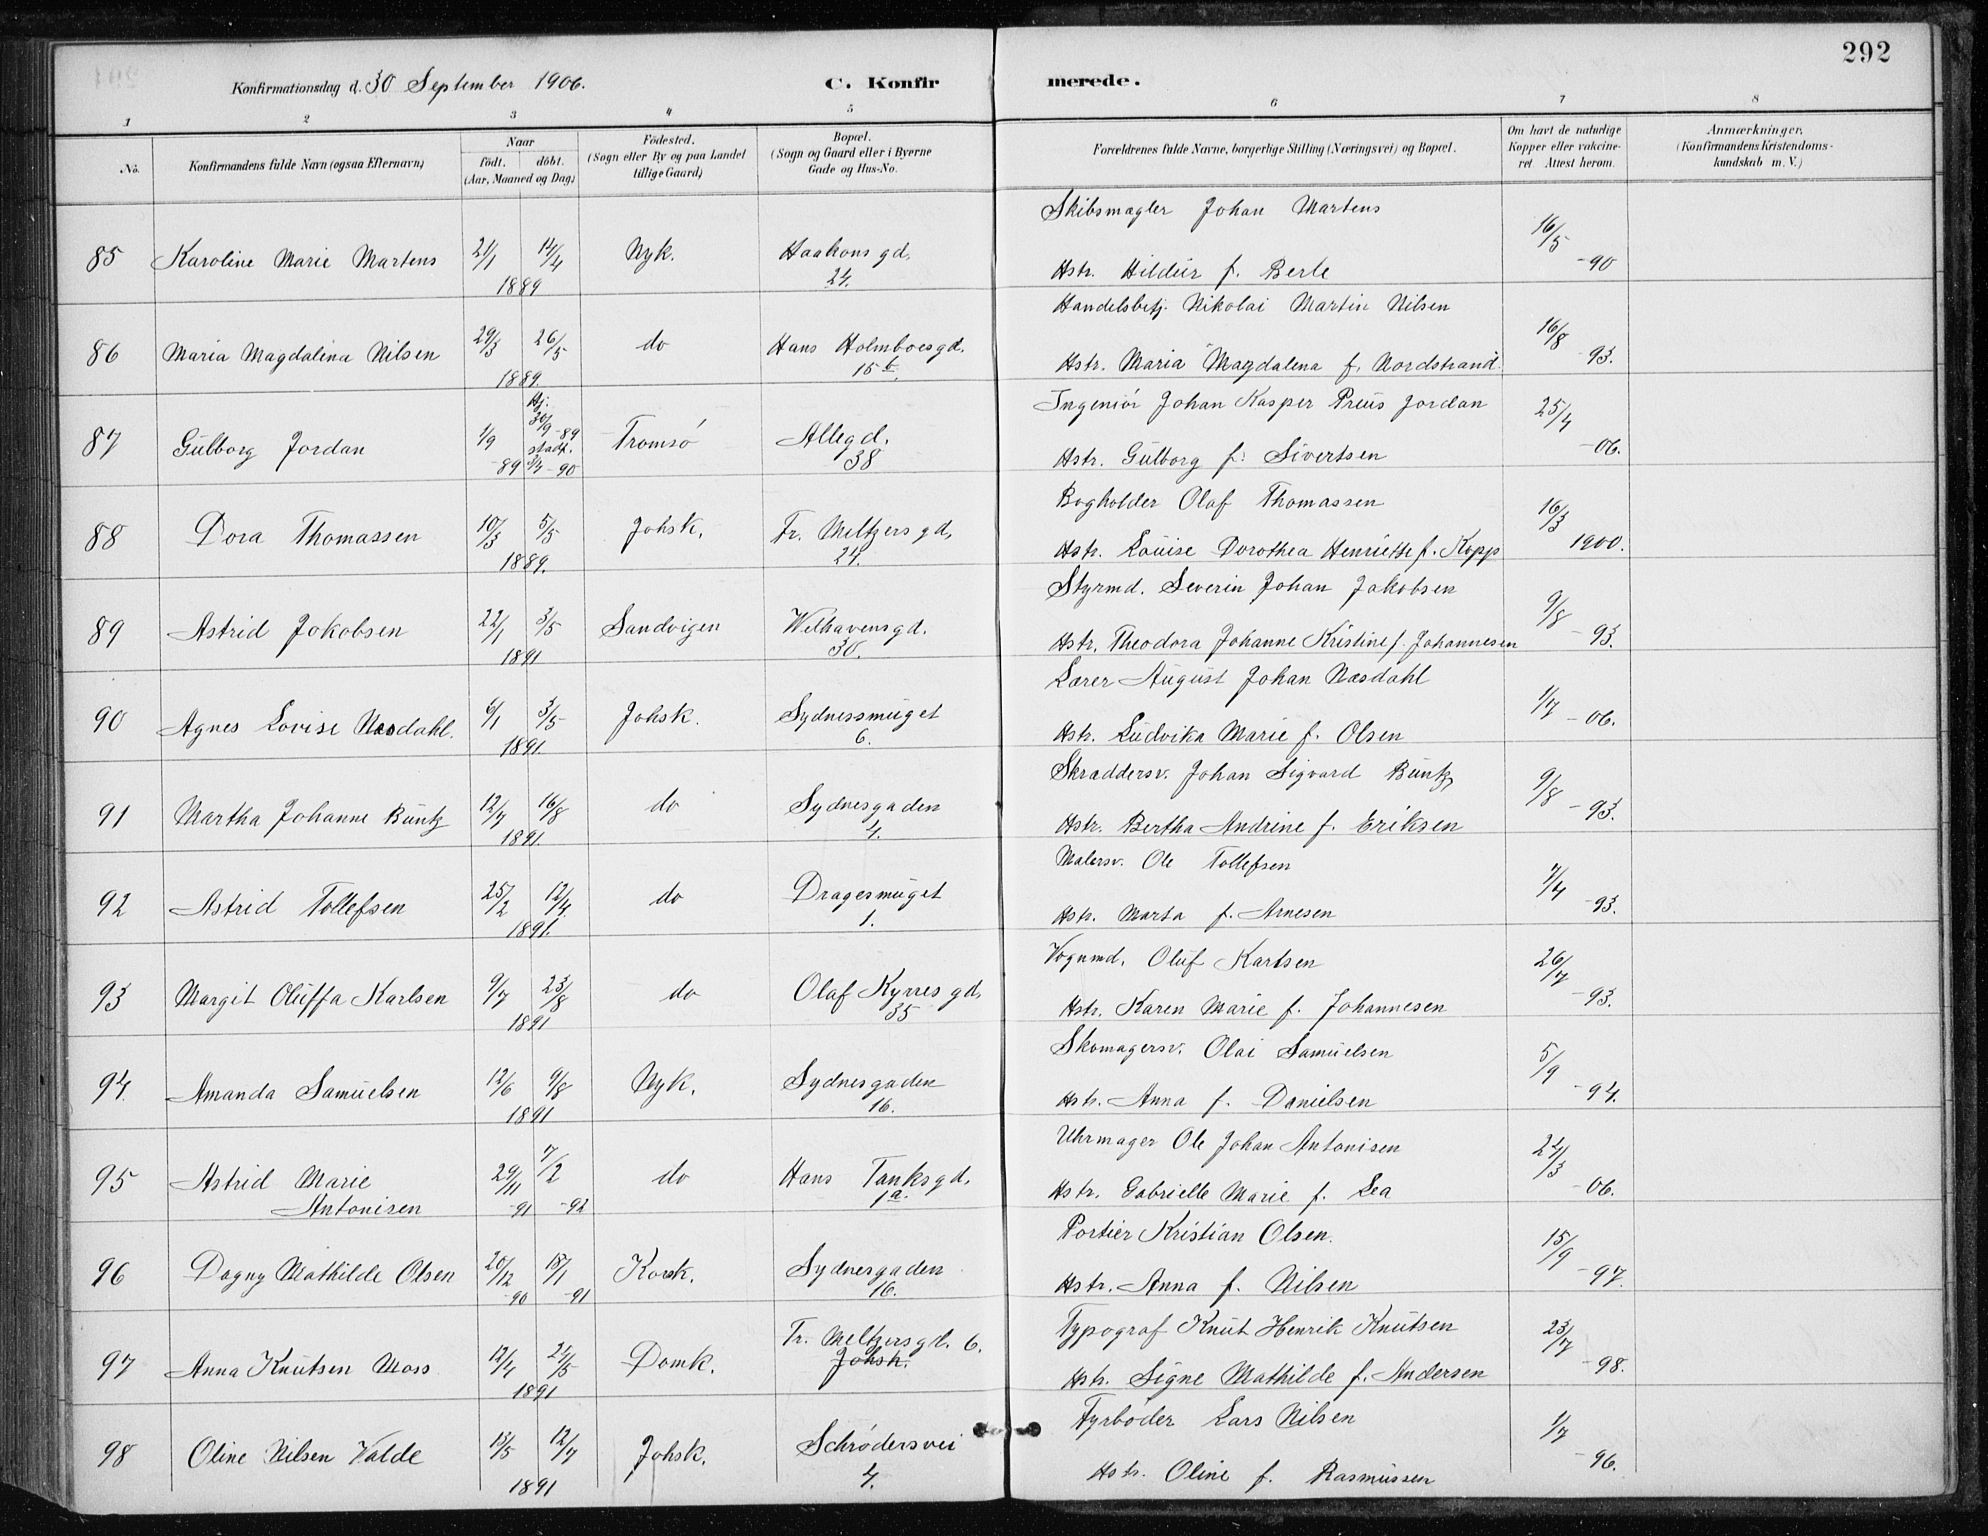 292
Konfirmationsdag d. 30 September 1906.
C. Konfirmerede.
1 2 3 4 5 6 7 8
No.
Konfirmandens fulde Navn (ogsaa Efternavn)
Naar
födt. döbt.
(Aar, Maaned og Dag.)
Födested.
(Sogn eller By og paa Landet
tillige Gaard)
Bopæl.
(Sogn og Gaard eller i Byerne
Gade og Hus-No.
Forældrenes fulde Navne, borgerlige Stilling (Næringsvei) og Bopæl.
Om havt de naturlige
Kopper eller vakcine-
ret. Attest herom.
Anmærkninger,
(Konfirmandens Kristendoms-
kundskab m. V.)
85 Karoline Marie Martens 21/1 14/4 1889 Nyk. Haakonsgd. 24. Skibsmægler Johan Martens 16/5 -90
Hstr. Hildur f. Berle
86 Maria Magdalina Nilsen 29/3 26/5 1889. do Hans Holmboesgd. 15 b. Handelsbetj. Nikolai Martin Nilsen 16/8 -93.
Hstr. Maria Magdalena f. Nordstrand.
87 Gulborg Jordan 1/9 -89 Hj. 30/9 -89 stadf. 3/4 -90 Tromsø Allegd. 38 Ingeniør Johan Kasper Preus Jordan 25/4 -06.
Hstr. Gulborg f. Sivertsen
88 Dora Thomassen 10/3 5/5 1889. Johsk. Fr. Meltzersgd. 24. Bogholder Olaf Thomassen 16/3 1900.
Hstr. Louise Dorothea Henriette f. Kopp
89 Astrid Jokobsen 22/1 3/5 1891 Sandvigen Welhavensgd. 30. Styrmd. Severin Johan Jakobsen 9/8 -93.
Hstr. Theodora Johanne Kristine f. Johannesen
90 Agnes Lovise Næsdahl. 6/1 3/5 1891. Johsk. Sydnessmuget 6. Lærer August Johan Næsdahl 1/7 -06.
Hstr. Ludvika Marie f. Olsen
91 Martha Johanne Buntz 12/7 16/8 1891. do Sydnesgaden 4. Skræddersv. Johan Sigvard Buntz 9/8 -93.
Hstr. Bertha Andrine f. Eriksen
92 Astrid Tollefsen 25/2 12/4 1891. do Dragesmuget 1. Malersv. Ole Tollefsen 7/4 -93.
Hstr. Marta f. Arnesen
93 Margit Oluffa Karlsen 9/7 23/8 1891 do Olaf Kyrresgd. 35 Vognmd. Oluf Karlsen 26/7 -93.
Hstr. Karen Marie f. Johannesen
94. Amanda Samuelsen 12/6 9/8 1891 Nyk. Sydnesgaden 16. Skomagersv. Olai Samuelsen 5/9 -94.
Hstr. Anna f. Danielsen
95 Astrid Marie Antonisen 29/11 -91 7/2 -92 do Hans Tanksgd. 1a. Uhrmager Ole Johan Antonisen 24/3 -06.
Hstr. Gabrielle Marie f. Lea
96 Dagny Mathilde Olsen 20/12 -90 18/1 -91 Korsk. Sydnesgaden 16. Portier Kristian Olsen. 15/9 -97.
Hstr. Anna f. Nilsen
97 Anna Knutsen Moss 12/4 24/5 1891 Domk. Fr. Meltzersgd. 6. Johsk. Typograf Knut Henrik Knutsen 23/7 -98.
Hstr. Signe Mathilde f. Andersen
98 Oline Nilsen Valde 13/5 12/7 1891 Johsk. Schrødersvei 4. Fyrbøder Lars Nilsen 1/7 -96.
Hstr. Oline f. Rasmussen